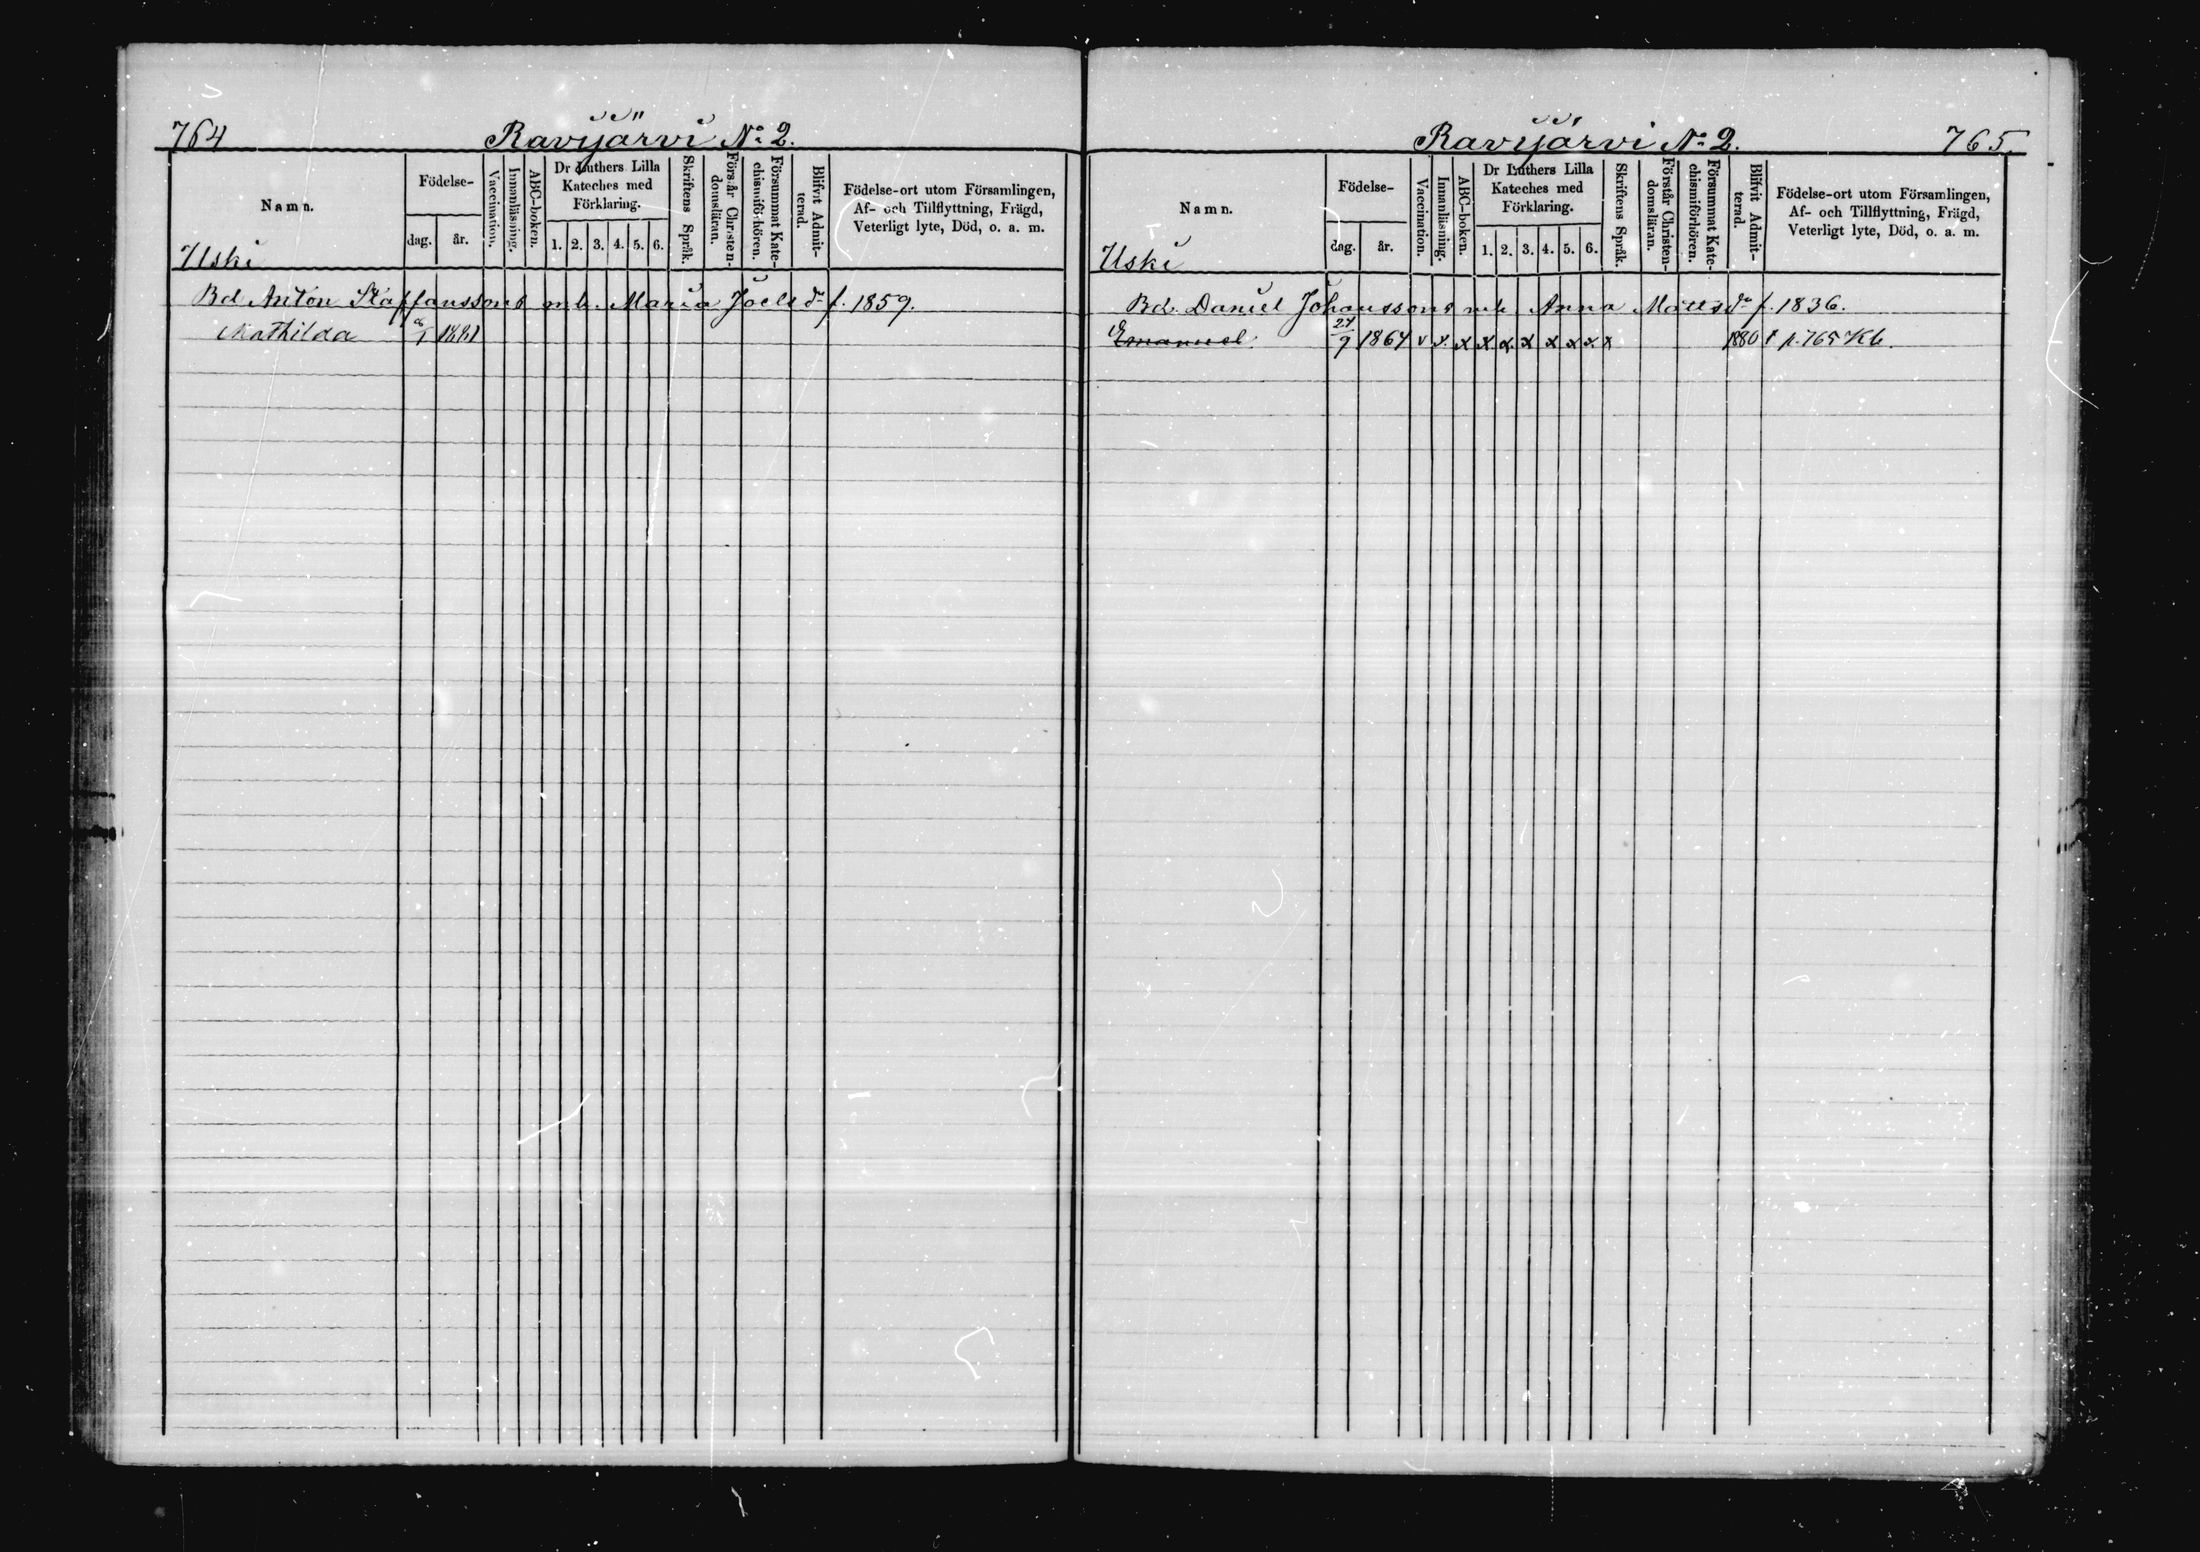 764 Ravijärvi No 2.
Namn. Födelse- dag. år. Vaccination. Innanläsning. ABC-boken. Dr Luthers Lilla Kateches med Förklaring. 1. 2. 3. 4. 5. 6. Skriftens Språk. Förstår Christendomsläran. Försummat Katechismiförhören. Blifvit Admitterad. Födelse-ort utom Församlingen, Af- och Tillflyttning, Frägd, Veterligt lyte, Död, o. a. m.
Uski
Bd Anton Staffanssons m h. Maria Joels dr f. 1859.
Mathilda 1881
Ravijärvi No 2. 765.
Namn. Födelse- dag. år. Vaccination. Innanläsning. ABC-boken. Dr Luthers Lilla Kateches med Förklaring. 1. 2. 3. 4. 5. 6. Skriftens Språk. Förstår Christendomsläran. Försummat Katechismiförhören. Blifvit Admitterad. Födelse-ort utom Församlingen, Af- och Tillflyttning, Frägd, Veterligt lyte, Död, o. a. m.
Uski
Bd. Daniel Johanssons m h. Anna Matts dr f. 1836.
Emanuel 27/9 1864 v v. x x x. x x x x. x 1880 p. 765 Kb.